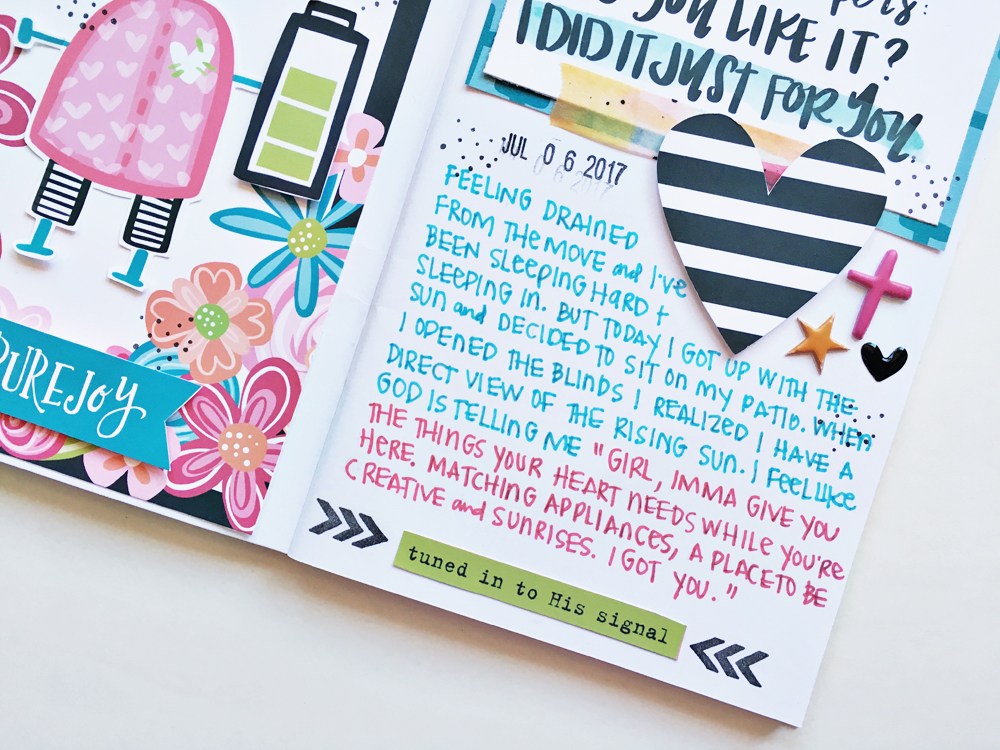 PURE JOY
YOU LIKE IT?
I DID IT JUST FOR YOU.
JUL 06 2017
FEELING DRAINED
FROM THE MOVE and I'VE
BEEN SLEEPING HARD +
SLEEPING IN. BUT TODAY I GOT UP WITH THE
SUN and DECIDED TO SIT ON MY PATIO. WHEN
I OPENED THE BLINDS I REALIZED I HAVE A
DIRECT VIEW OF THE RISING SUN. I FEEL LIKE
GOD IS TELLING ME "GIRL, IMMA GIVE YOU
THE THINGS YOUR HEART NEEDS WHILE YOU'RE
HERE. MATCHING APPLIANCES, A PLACE TO BE
CREATIVE and SUNRISES. I GOT YOU."
tuned in to His signal